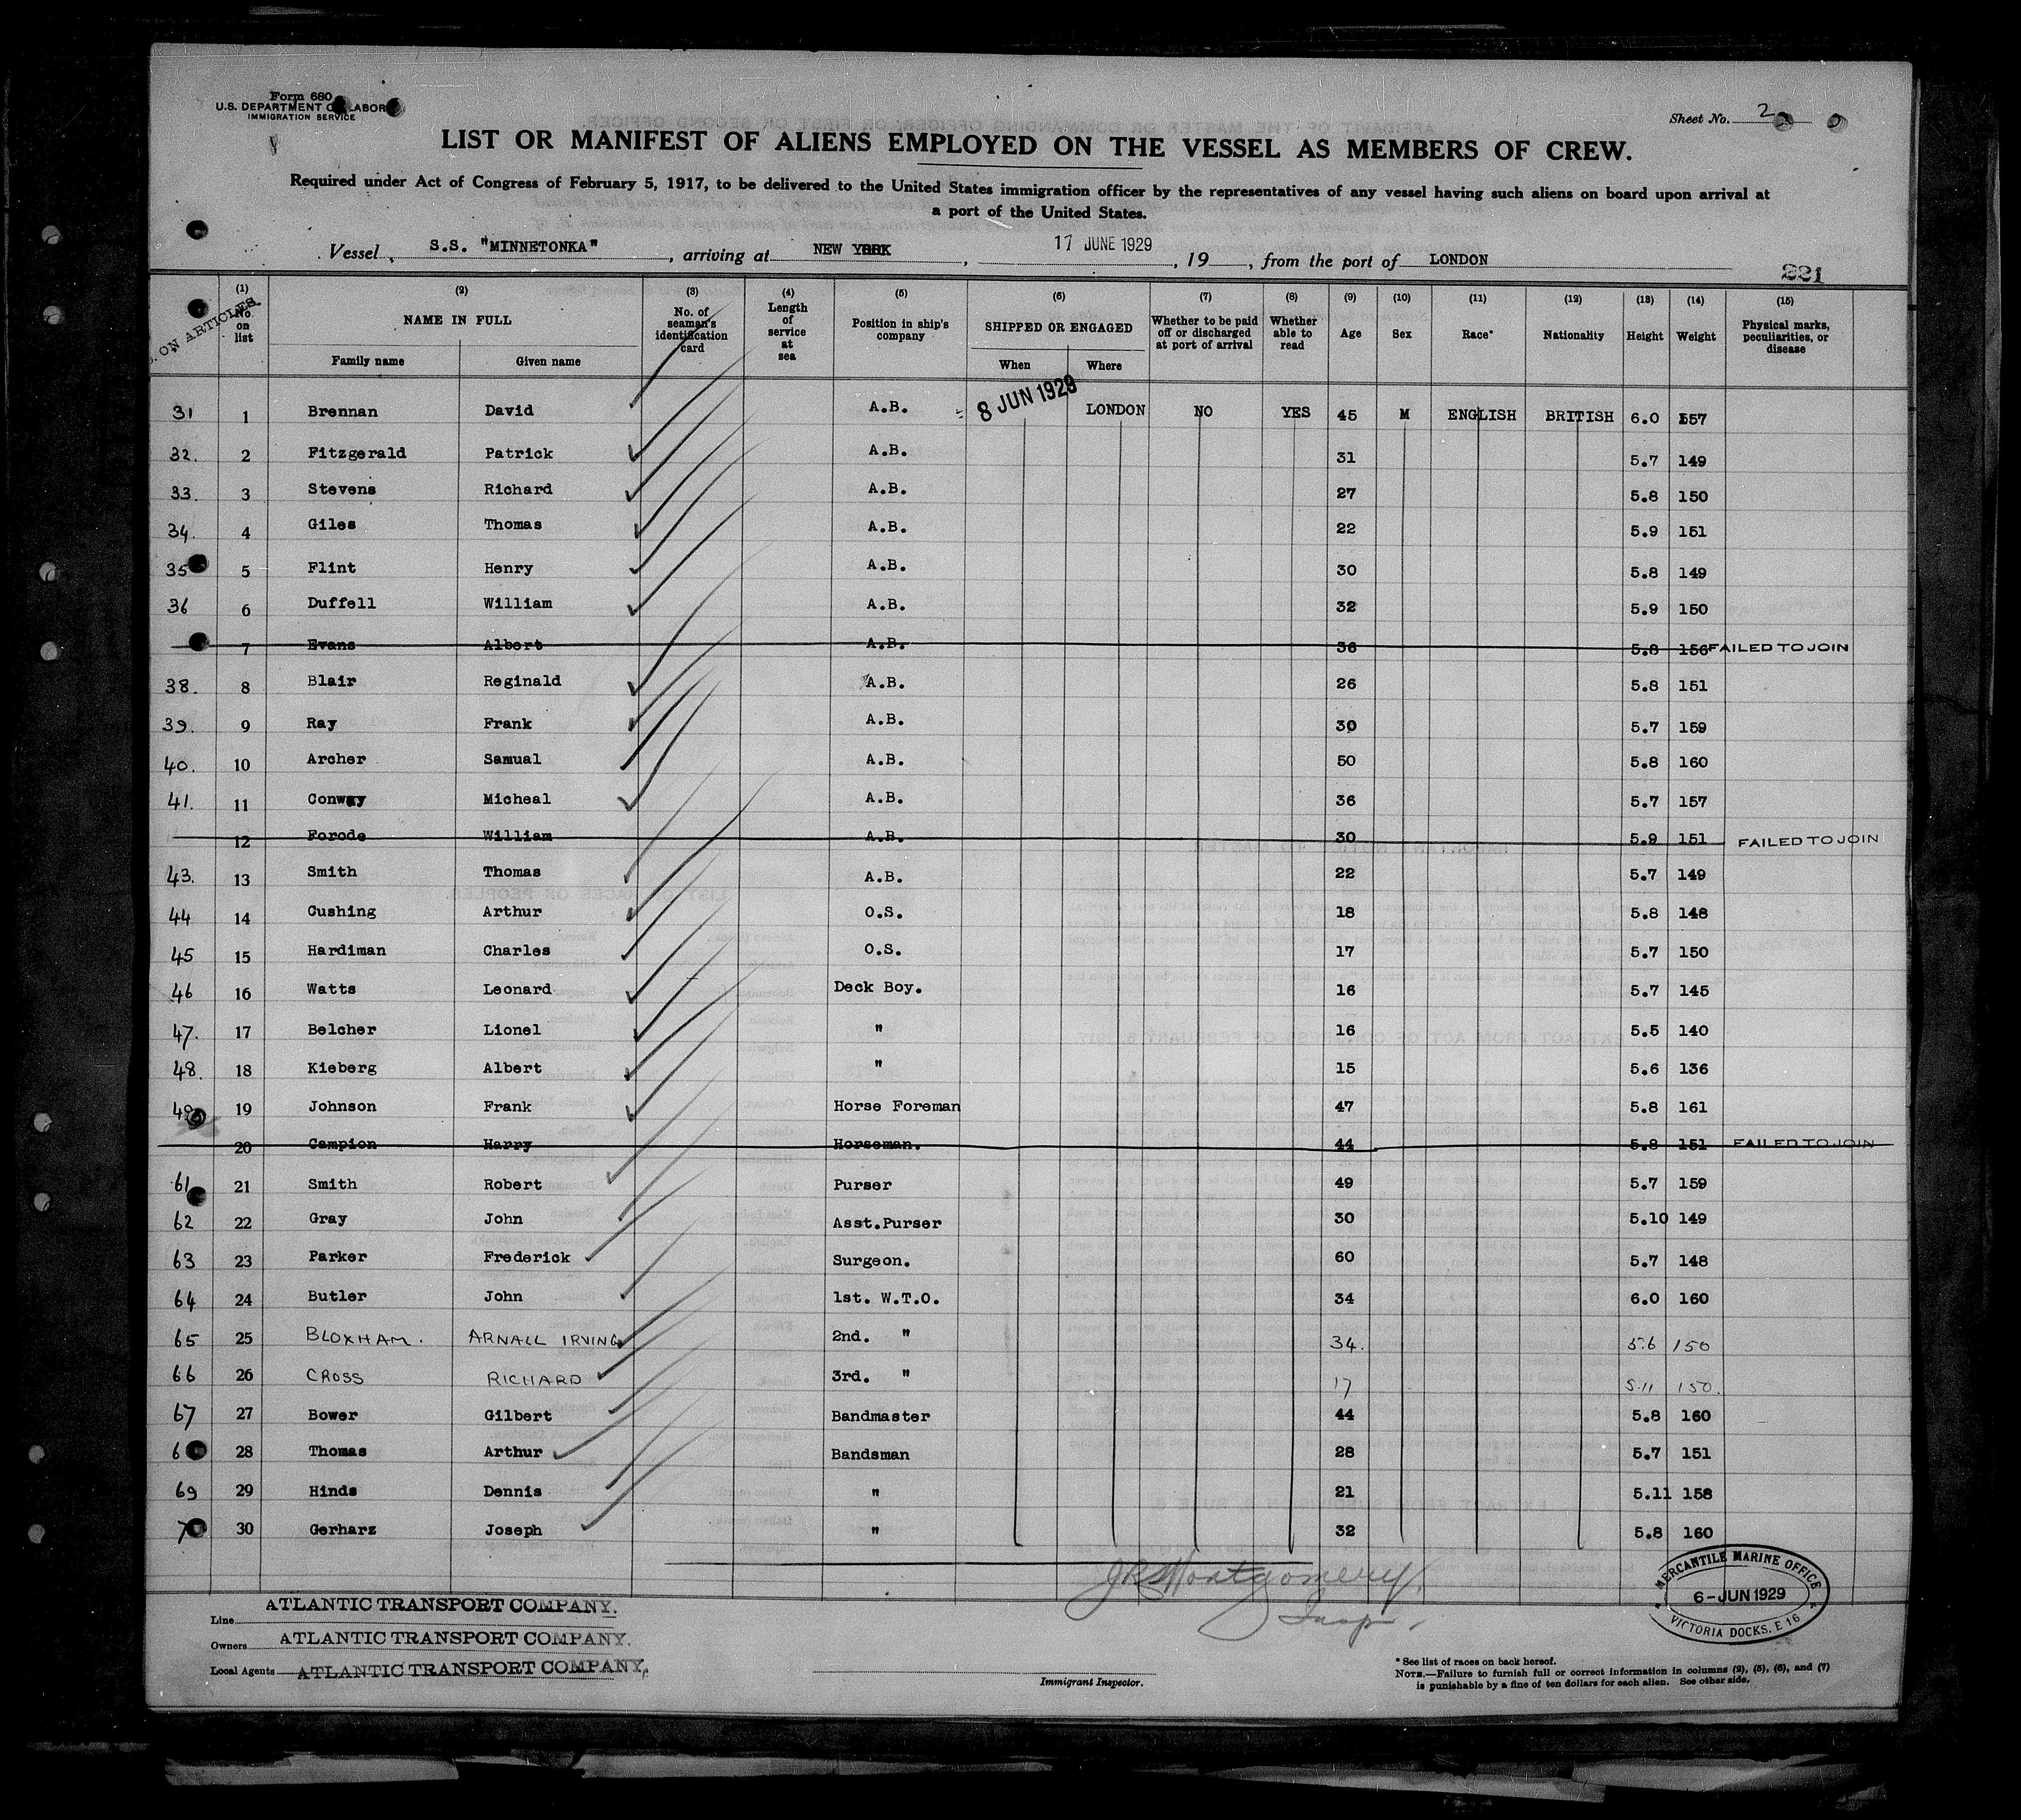 Form 680
U.S. DEPARTMENT OF LABOR
IMMIGRATION SERVICE
Sheet No. 2
LIST OR MANIFEST OF ALIENS EMPLOYED ON THE VESSEL AS MEMBERS OF CREW.
Required under Act of Congress of February 5, 1917, to be delivered to the United States immigration officer by the representatives of any vessel having such aliens on board upon arrival at
a port of the United States.
Vessel, S.S. "MINNETONKA", arriving at NEW YORK, 17 JUNE 1929, 19, from the port of LONDON
221
ON ARTICLES
(1) No. on list
(2) NAME IN FULL Family name Given name
(3) No. of seaman's identification card
(4) Length of service at sea
(5) Position in ship's company
(6) SHIPPED OR ENGAGED When Where
(7) Whether to be paid off or discharged at port of arrival
(8) Whether able to read
(9) Age
(10) Sex
(11) Race*
(12) Nationality
(13) Height
(14) Weight
(15) Physical marks, peculiarities, or disease
31 1 Brennan David A.B. 8 JUN 1929 LONDON NO YES 45 M ENGLISH BRITISH 6.0 157
32. 2 Fitzgerald Patrick A.B. 31 5.7 149
33. 3 Stevens Richard A.B. 27 5.8 150
34. 4 Giles Thomas A.B. 22 5.9 151
35 5 Flint Henry A.B. 30 5.8 149
36 6 Duffell William A.B. 32 5.9 150
7 Evans Albert A.B. 36 5.8 156 FAILED TO JOIN
38. 8 Blair Reginald A.B. 26 5.8 151
39. 9 Ray Frank A.B. 30 5.7 159
40. 10 Archer Samual A.B. 50 5.8 160
41. 11 Conway Micheal A.B. 36 5.7 157
12 Forode William A.B. 30 5.9 151 FAILED TO JOIN
43. 13 Smith Thomas A.B. 22 5.7 149
44 14 Cushing Arthur O.S. 18 5.8 148
45 15 Hardiman Charles O.S. 17 5.7 150
46 16 Watts Leonard Deck Boy. 16 5.7 145
47. 17 Belcher Lionel " 16 5.5 140
48. 18 Kieberg Albert " 15 5.6 136
49 19 Johnson Frank Horse Foreman 47 5.8 161
20 Campion Harry Horseman. 44 5.8 151 FAILED TO JOIN
61 21 Smith Robert Purser 49 5.7 159
62 22 Gray John Asst.Purser 30 5.10 149
63 23 Parker Frederick Surgeon. 60 5.7 148
64 24 Butler John 1st. W.T.O. 34 6.0 160
65 25 BLOXHAM. ARNALL IRVING 2nd. " 34. 5.6 150
66 26 CROSS RICHARD 3rd. " 17 5.11 150.
67 27 Bower Gilbert Bandmaster 44 5.8 160
6 28 Thomas Arthur Bandsman 28 5.7 151
69 29 Hinds Dennis " 21 5.11 158
7 30 Gerharz Joseph " 32 5.8 160
JR Montgomery
Insp.
MERCANTILE MARINE OFFICE
6-JUN 1929
VICTORIA DOCKS. E 16
Line ATLANTIC TRANSPORT COMPANY.
Owners ATLANTIC TRANSPORT COMPANY.
Local Agents ATLANTIC TRANSPORT COMPANY.
Immigrant Inspector.
* See list of races on back hereof.
NOTE.—Failure to furnish full or correct information in columns (2), (5), (6), and (7)
is punishable by a fine of ten dollars for each alien. See other side.